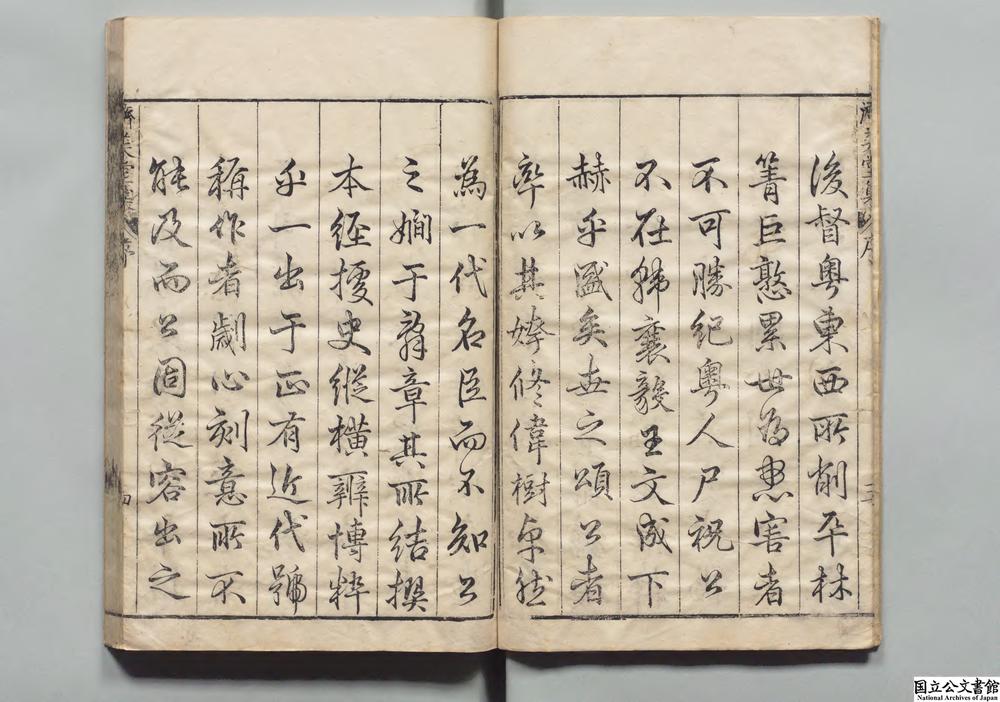 後督粤東西所削平林
箐巨憝累世為患害者
不可勝紀粤人尸祝公
不在韩襄毅王文成下
赫乎盛矣世之頌公者
率以其姱修偉樹卓然
為一代名臣而不知公
之嫺于辭章其所結撰
本經擾史縱橫辯博粹
乎一出于正有近代號
稱作者劌心刻意所不
能及而公固從容出之
序
四
国立公文書館
National Archives of Japan